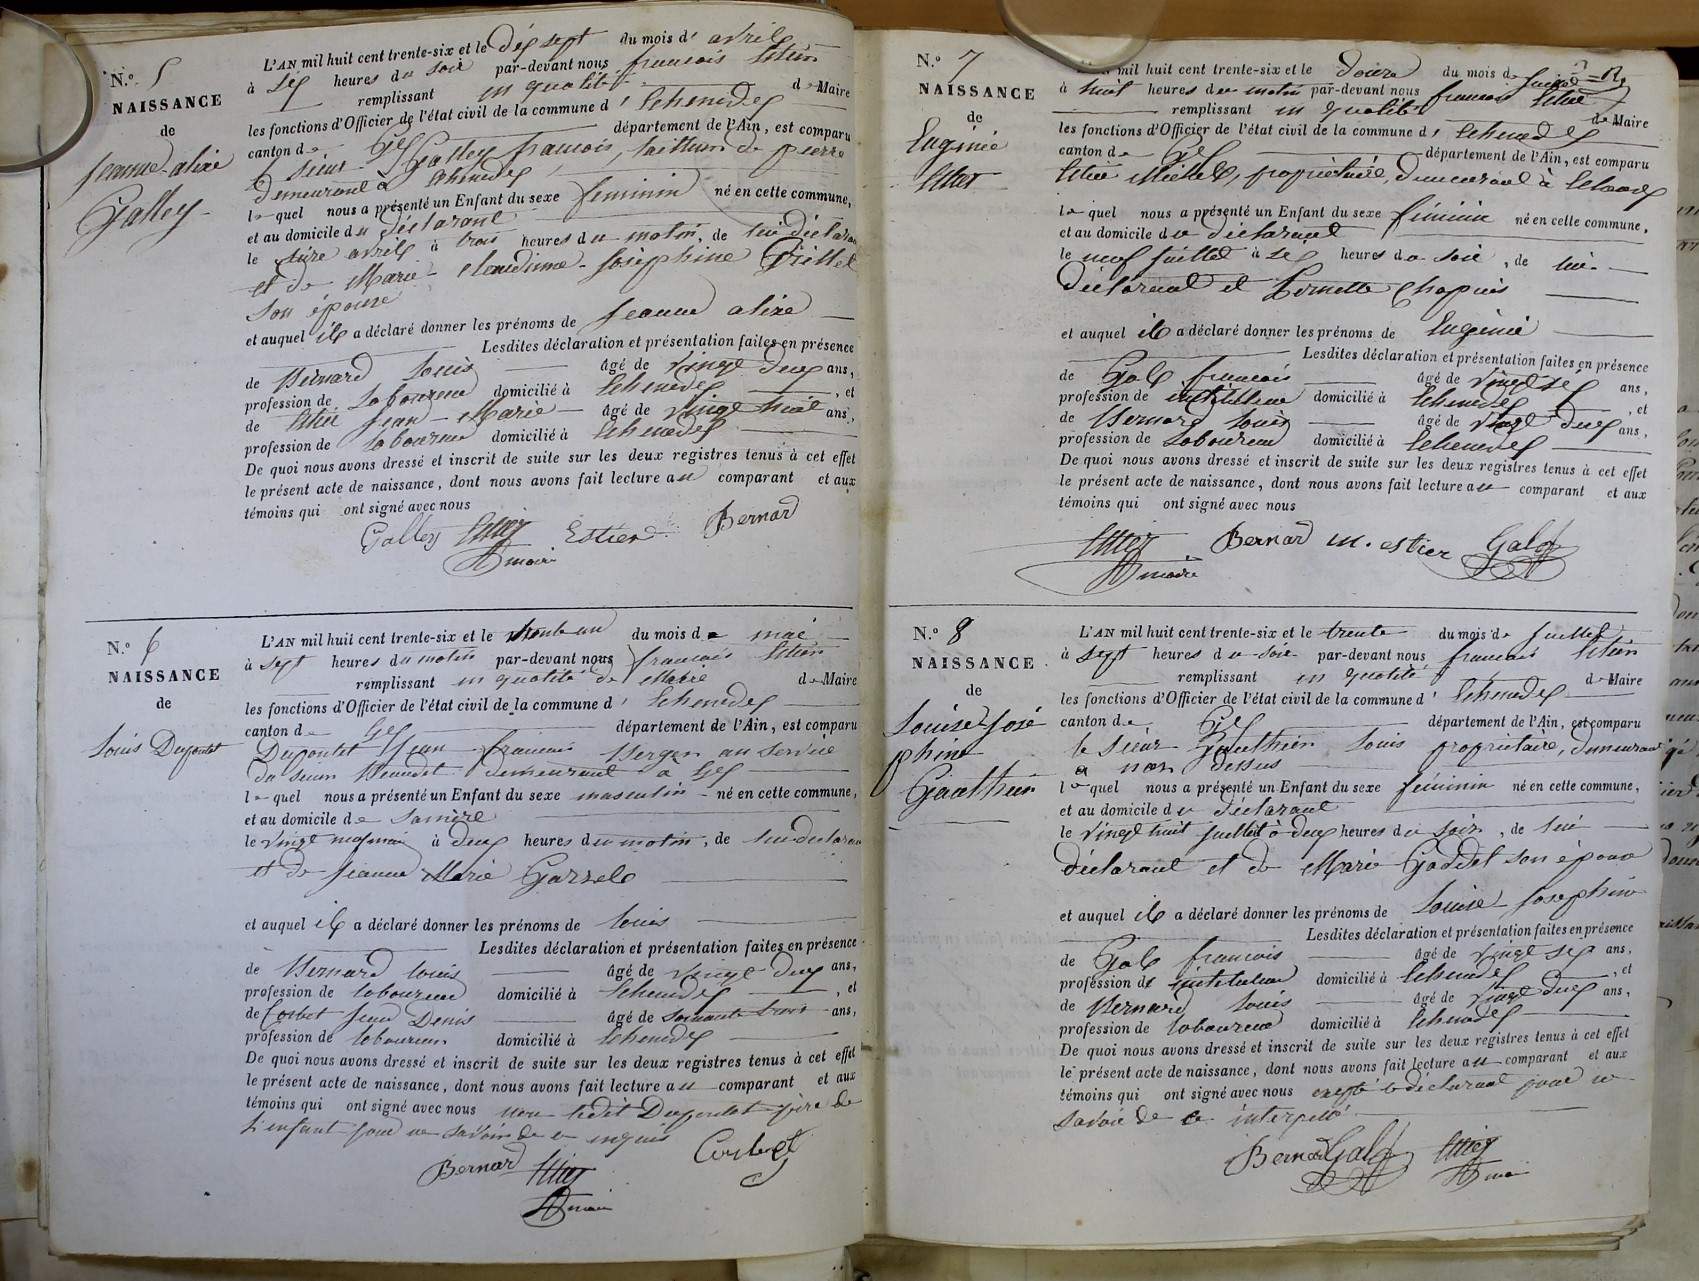 N.º 5
NAISSANCE
de
Jeanne alixe
Galley
L'AN mil huit cent trente-six et le dix sept du mois d'avril
à six heures du soir par-devant nous francois Estier
remplissant en qualité de Maire
les fonctions d'Officier de l'état civil de la commune d'Echenedex
canton de Gex département de l'Ain, est comparu
le sieur Galley francois, tailleur de pierre
demeurant à Echenedex
lequel nous a présenté un Enfant du sexe feminin né en cette commune,
et au domicile du déclarant
le avril à trois heures du matin, de lui déclarant
et de Marie Claudinne Josephine
son épouse
et auquel il a déclaré donner les prénoms de Jeanne alixe
Lesdites déclaration et présentation faites en présence
de Bernard Louis âgé de vingt deux ans,
profession de laboureur domicilié à Echenedex, et
de Estier Jean Marie âgé de vingt huit ans,
profession de laboureur domicilié à Echenedex
De quoi nous avons dressé et inscrit de suite sur les deux registres tenus à cet effet
le présent acte de naissance, dont nous avons fait lecture au comparant et aux
témoins qui ont signé avec nous
Galley Estier Estier Bernard
maire
N.º 6
NAISSANCE
de
Louis Dupontet
L'AN mil huit cent trente-six et le trente un du mois de mai
à sept heures du matin par-devant nous francois Estier
remplissant en qualité de Maire de Maire
les fonctions d'Officier de l'état civil de la commune d'Echenedex
canton de Gex département de l'Ain, est comparu
Dupontet Jean francois Berger au service
du sieur demeurant à Gex
lequel nous a présenté un Enfant du sexe masculin né en cette commune,
et au domicile de sa mère
le vingt neuf mai à deux heures du matin, de lui déclarant
et de Jeanne Marie
et auquel il a déclaré donner les prénoms de Louis
Lesdites déclaration et présentation faites en présence
de Bernard Louis âgé de vingt deux ans,
profession de laboureur domicilié à Echenedex, et
de Corbet Jean Denis âgé de soixante trois ans,
profession de laboureur domicilié à Echenedex
De quoi nous avons dressé et inscrit de suite sur les deux registres tenus à cet effet
le présent acte de naissance, dont nous avons fait lecture au comparant et aux
témoins qui ont signé avec nous non ledit Dupontet père de
l'enfant pour ne savoir de ce enquis
Bernard Estier Corbet
maire
N.º 7
NAISSANCE
de
Eugénie
Estier
L'AN mil huit cent trente-six et le douze du mois de Juillet
à huit heures du matin par-devant nous francois Estier
remplissant en qualité de Maire
les fonctions d'Officier de l'état civil de la commune d'Echenedex
canton de Gex département de l'Ain, est comparu
Estier Michel, propriétaire, demeurant à Echenedex
lequel nous a présenté un Enfant du sexe féminin né en cette commune,
et au domicile du déclarant
le neuf Juillet à six heures du soir, de lui
déclarant et Pernette Chapuis
et auquel il a déclaré donner les prénoms de Eugénie
Lesdites déclaration et présentation faites en présence
de Galo francois âgé de vingt six ans,
profession de instituteur domicilié à Echenedex, et
de Bernard Louis âgé de vingt deux ans,
profession de laboureur domicilié à Echenedex
De quoi nous avons dressé et inscrit de suite sur les deux registres tenus à cet effet
le présent acte de naissance, dont nous avons fait lecture au comparant et aux
témoins qui ont signé avec nous
Estier Bernard m. estier Galo
maire
N.º 8
NAISSANCE
de
Louise José
phine
Gauthier
L'AN mil huit cent trente-six et le trente du mois de Juillet
à sept heures du soir par-devant nous francois Estier
remplissant en qualité de Maire
les fonctions d'Officier de l'état civil de la commune d'Echenedex
canton de Gex département de l'Ain, est comparu
le sieur Gauthier Louis propriétaire, demeurant
dessus
lequel nous a présenté un Enfant du sexe féminin né en cette commune,
et au domicile du déclarant
le vingt huit Juillet à deux heures du soir, de lui
déclarant et de Marie Goddet son épouse
et auquel il a déclaré donner les prénoms de Louise Josephine
Lesdites déclaration et présentation faites en présence
de Galo francois âgé de vingt six ans,
profession de instituteur domicilié à Echenedex, et
de Bernard Louis âgé de vingt deux ans,
profession de laboureur domicilié à Echenedex
De quoi nous avons dressé et inscrit de suite sur les deux registres tenus à cet effet
le présent acte de naissance, dont nous avons fait lecture au comparant et aux
témoins qui ont signé avec nous excepté le déclarant pour ne
savoir de ce interpellé
Bernard Galo Estier
maire